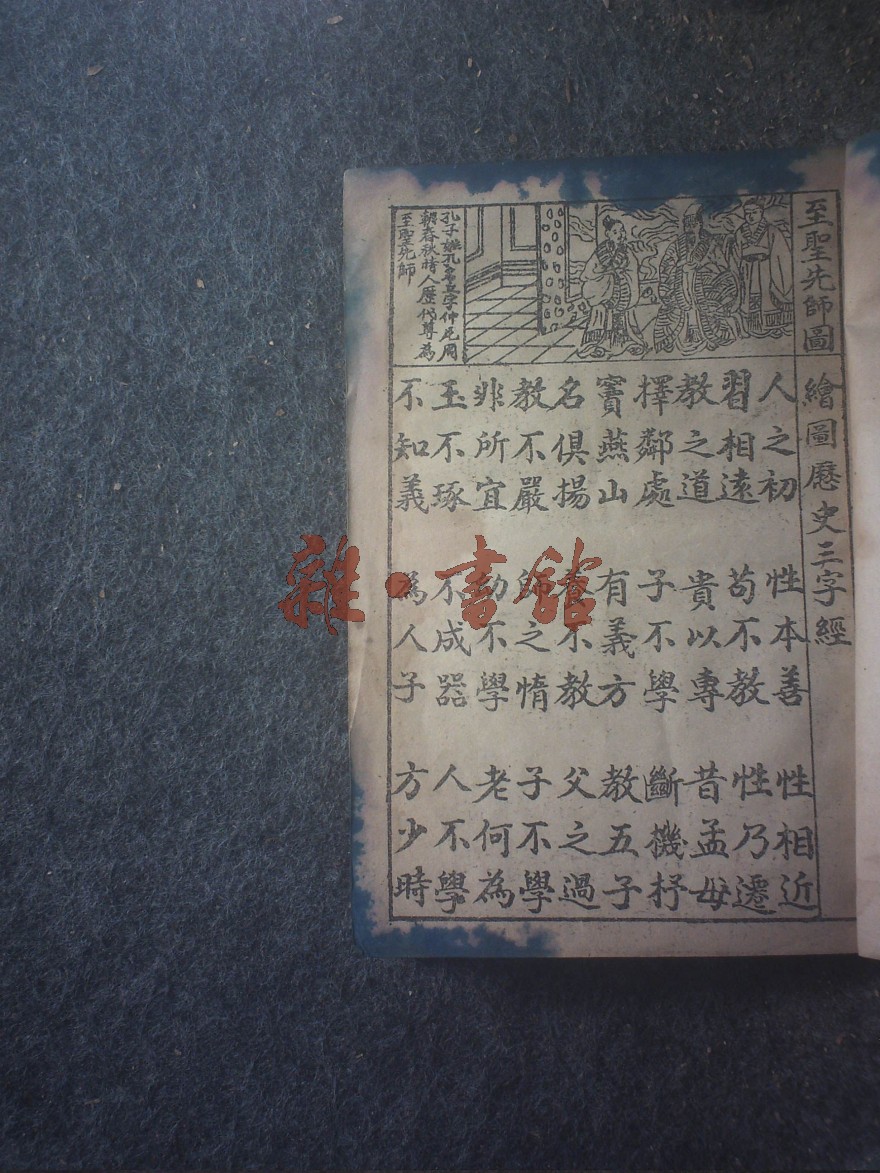 至聖先師圖
孔子姓孔名丘字仲尼周
朝春秋時人歷代尊為
至聖先師
繪圖歷史三字經
人之初 性本善 性相近
習相遠 苟不教 性乃遷
教之道 貴以專 昔孟母
擇鄰處 子不學 斷機杼
竇燕山 有義方 教五子
名俱揚 養不教 父之過
教不嚴 師之惰 子不學
非所宜 幼不學 老何為
玉不琢 不成器 人不學
不知義 為人子 方少時
雜·書館